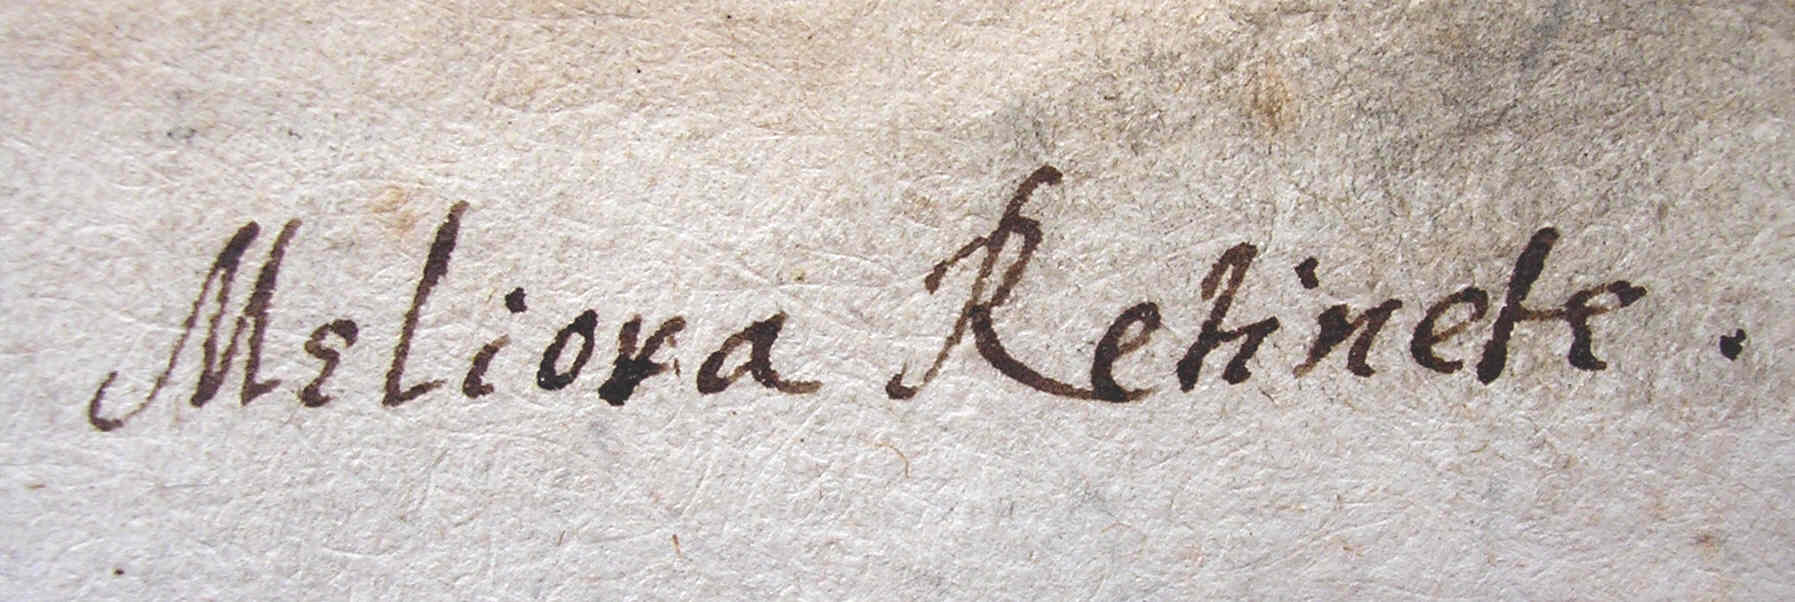 Meliora Retinete .